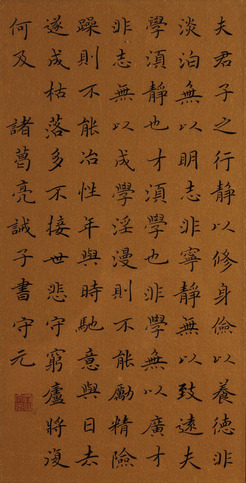 夫君子之行靜以修身儉以養德非
淡泊無以明志非寧靜無以致遠夫
學湏靜也才湏學也非學無以廣才
非志無以成學淫漫則不能勵精險
躁則不能冶性年與時馳意與日去
遂成枯落多不接世悲守窮廬將復
何及 諸葛亮誡子書守元